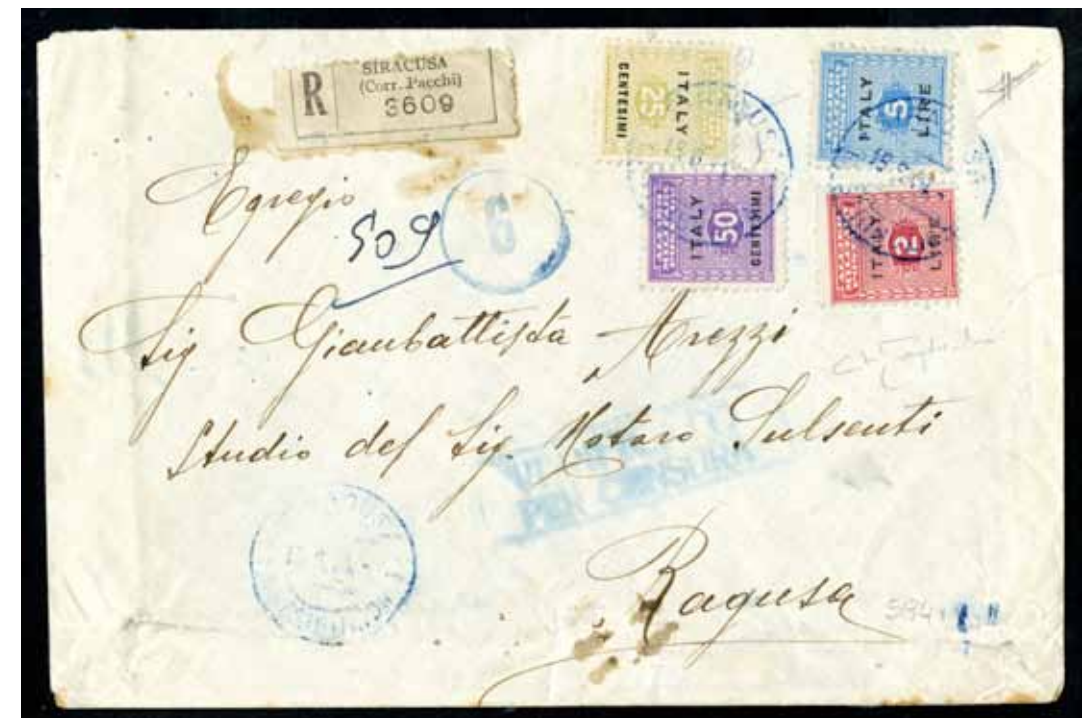 R
SIRACUSA
(Corr. Pacchi)
3609
ITALY
25
CENTESIMI
ITALY
5
LIRE
ITALY
50
CENTESIMI
ITALY
2
LIRE
6
Egregio
509
Sig Gianbattista Arezzi
Studio del Sig. Notaro Sulsenti
PER CENSURA
Ragusa